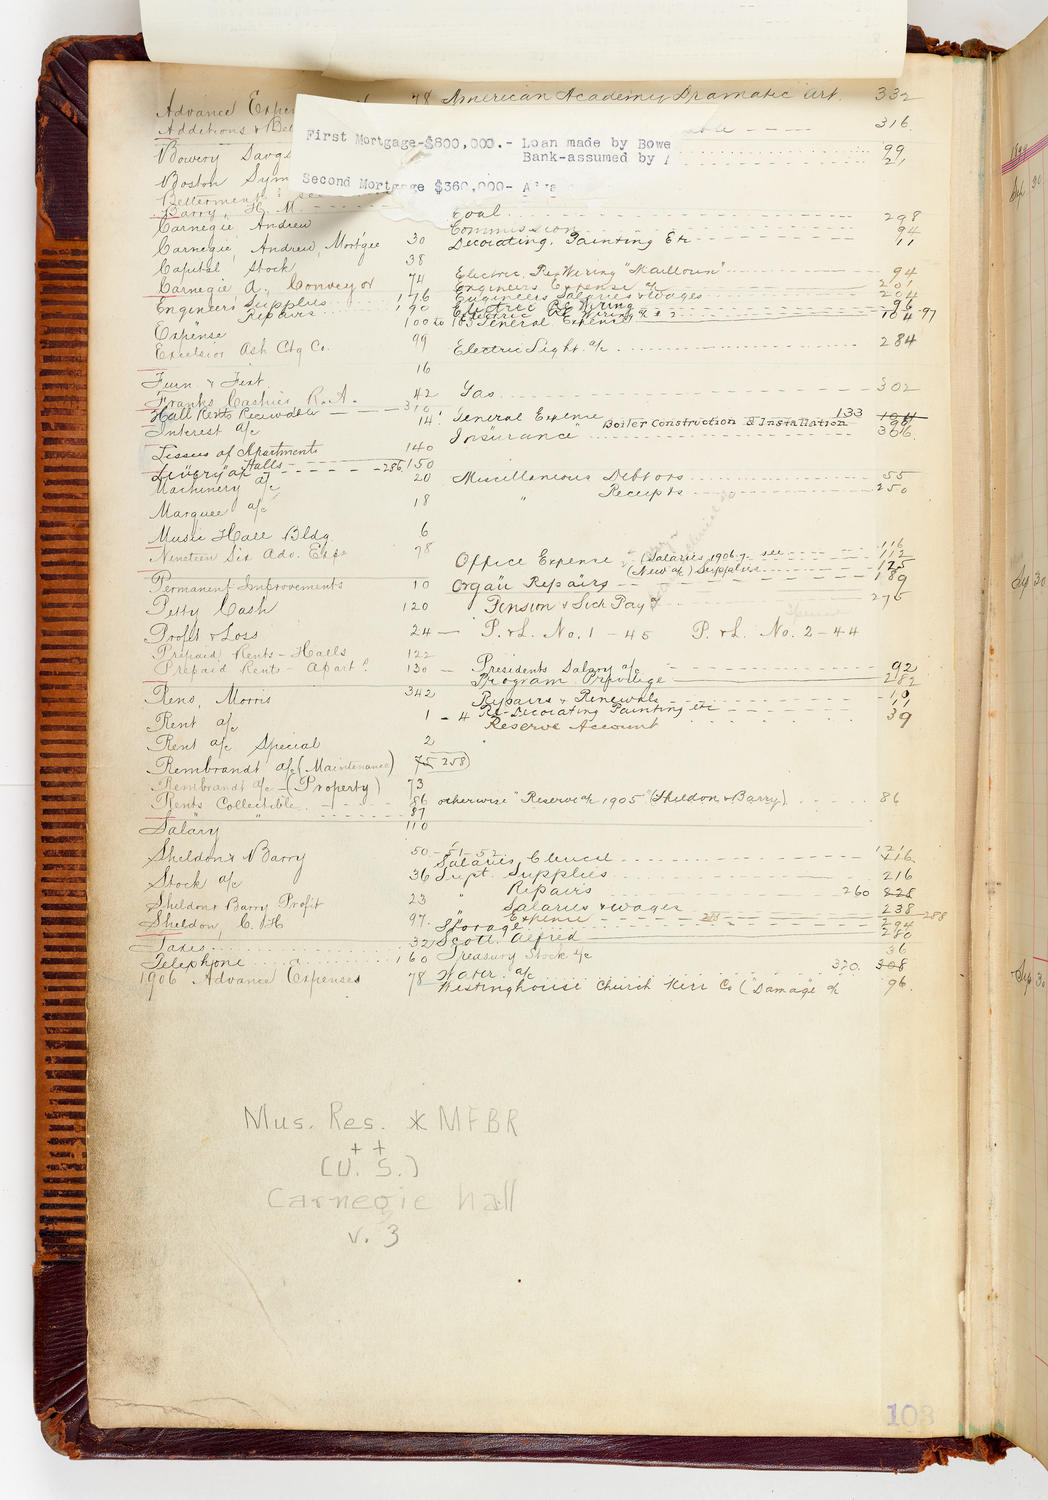 Advance Expe 78 American Academy Dramatic Art. 332
Additions & Bet able 316.
First Mortgage-$800,000.- Loan made by Bowe
Bank-assumed by
Second Mortgage $360,000-
Bowery Savgs 99
Boston Sym 21
Betterment
Barry, H. M. Coal 298
Carnegie, Andrew Commission 94
Carnegie, Andrew, Mortgee 30 Decorating, Painting Etc 11
Capital Stock 38
Carnegie A., Conveyor 74 Electric Re-Wiring "Mailloux" 94
Engineers Expense a/c 201
Engineers' Supplies 176 Engineers Salaries & wages 204
" Repairs 190 Electric Re Wiring 96
Expense 100 to 103 General Expense 104-97
Excelsior Ash Ctg Co. 99 Electric Light a/c 284
Furn. & Fixt. 16
Franks Cashier R. A. 42 Gas 302
Hall Rents Receivable 310
Interest a/c 14 General Expense Boiler Construction & Installation 133
Insurance 306
Lessees of Apartments 140
" " Halls 150
Livery a/c 286
Machinery a/c 20 Miscellaneous Debtors 55
Marquee a/c 18 " Receipts 250
Music Hall Bldg. 6
Nineteen Six Adv. Exps 78 116
Office Expense (Salaries 1906-7- see 112
(New a/c) Supplies 125
Permanent Improvements 10 Organ Repairs 189
Petty Cash 120 Pension & Sick Pay a/c 276
Profit & Loss 24 — P. & L. No. 1 - 45 P. & L. No. 2 - 44
Prepaid Rents - Halls 122
Prepaid Rents - Apart 130 — Presidents Salary a/c 92
Program Privilege 282
Rens, Morris 342 Repairs & Renewals 10
Rent a/c 1 - 4 Re-Decorating Painting etc 11
Reserve Account 39
Rent a/c Special 2
Rembrandt a/c (Maintenance) 75 258
Rembrandt a/c - (Property) 73
Rents Collectible 86 otherwise "Reserve a/c 1905" (Sheldon & Barry) 86
" " 87
Salary 110
Sheldon & Barry 50 - 51 - 52 Salaries Clerical 121 116
Stock a/c 36 Supt. Supplies 216
" Repairs 260 228
Sheldon & Barry Profit 23 " Salaries & wages 238
Sheldon, C. H. 97 " Expense 288
Storage 294
Taxes 32 Scott. Alfred 280
Telephone 160 Treasury Stock a/c 36
1906 Advance Expenses 78 Water a/c 320. 308
Westinghouse Church Kerr Co ("Damage" a/c 96
Mus. Res. * MFBR
+ +
(U. S.)
Carnegie Hall
v. 3
103
Sep 30
Sep 30
Sep 30